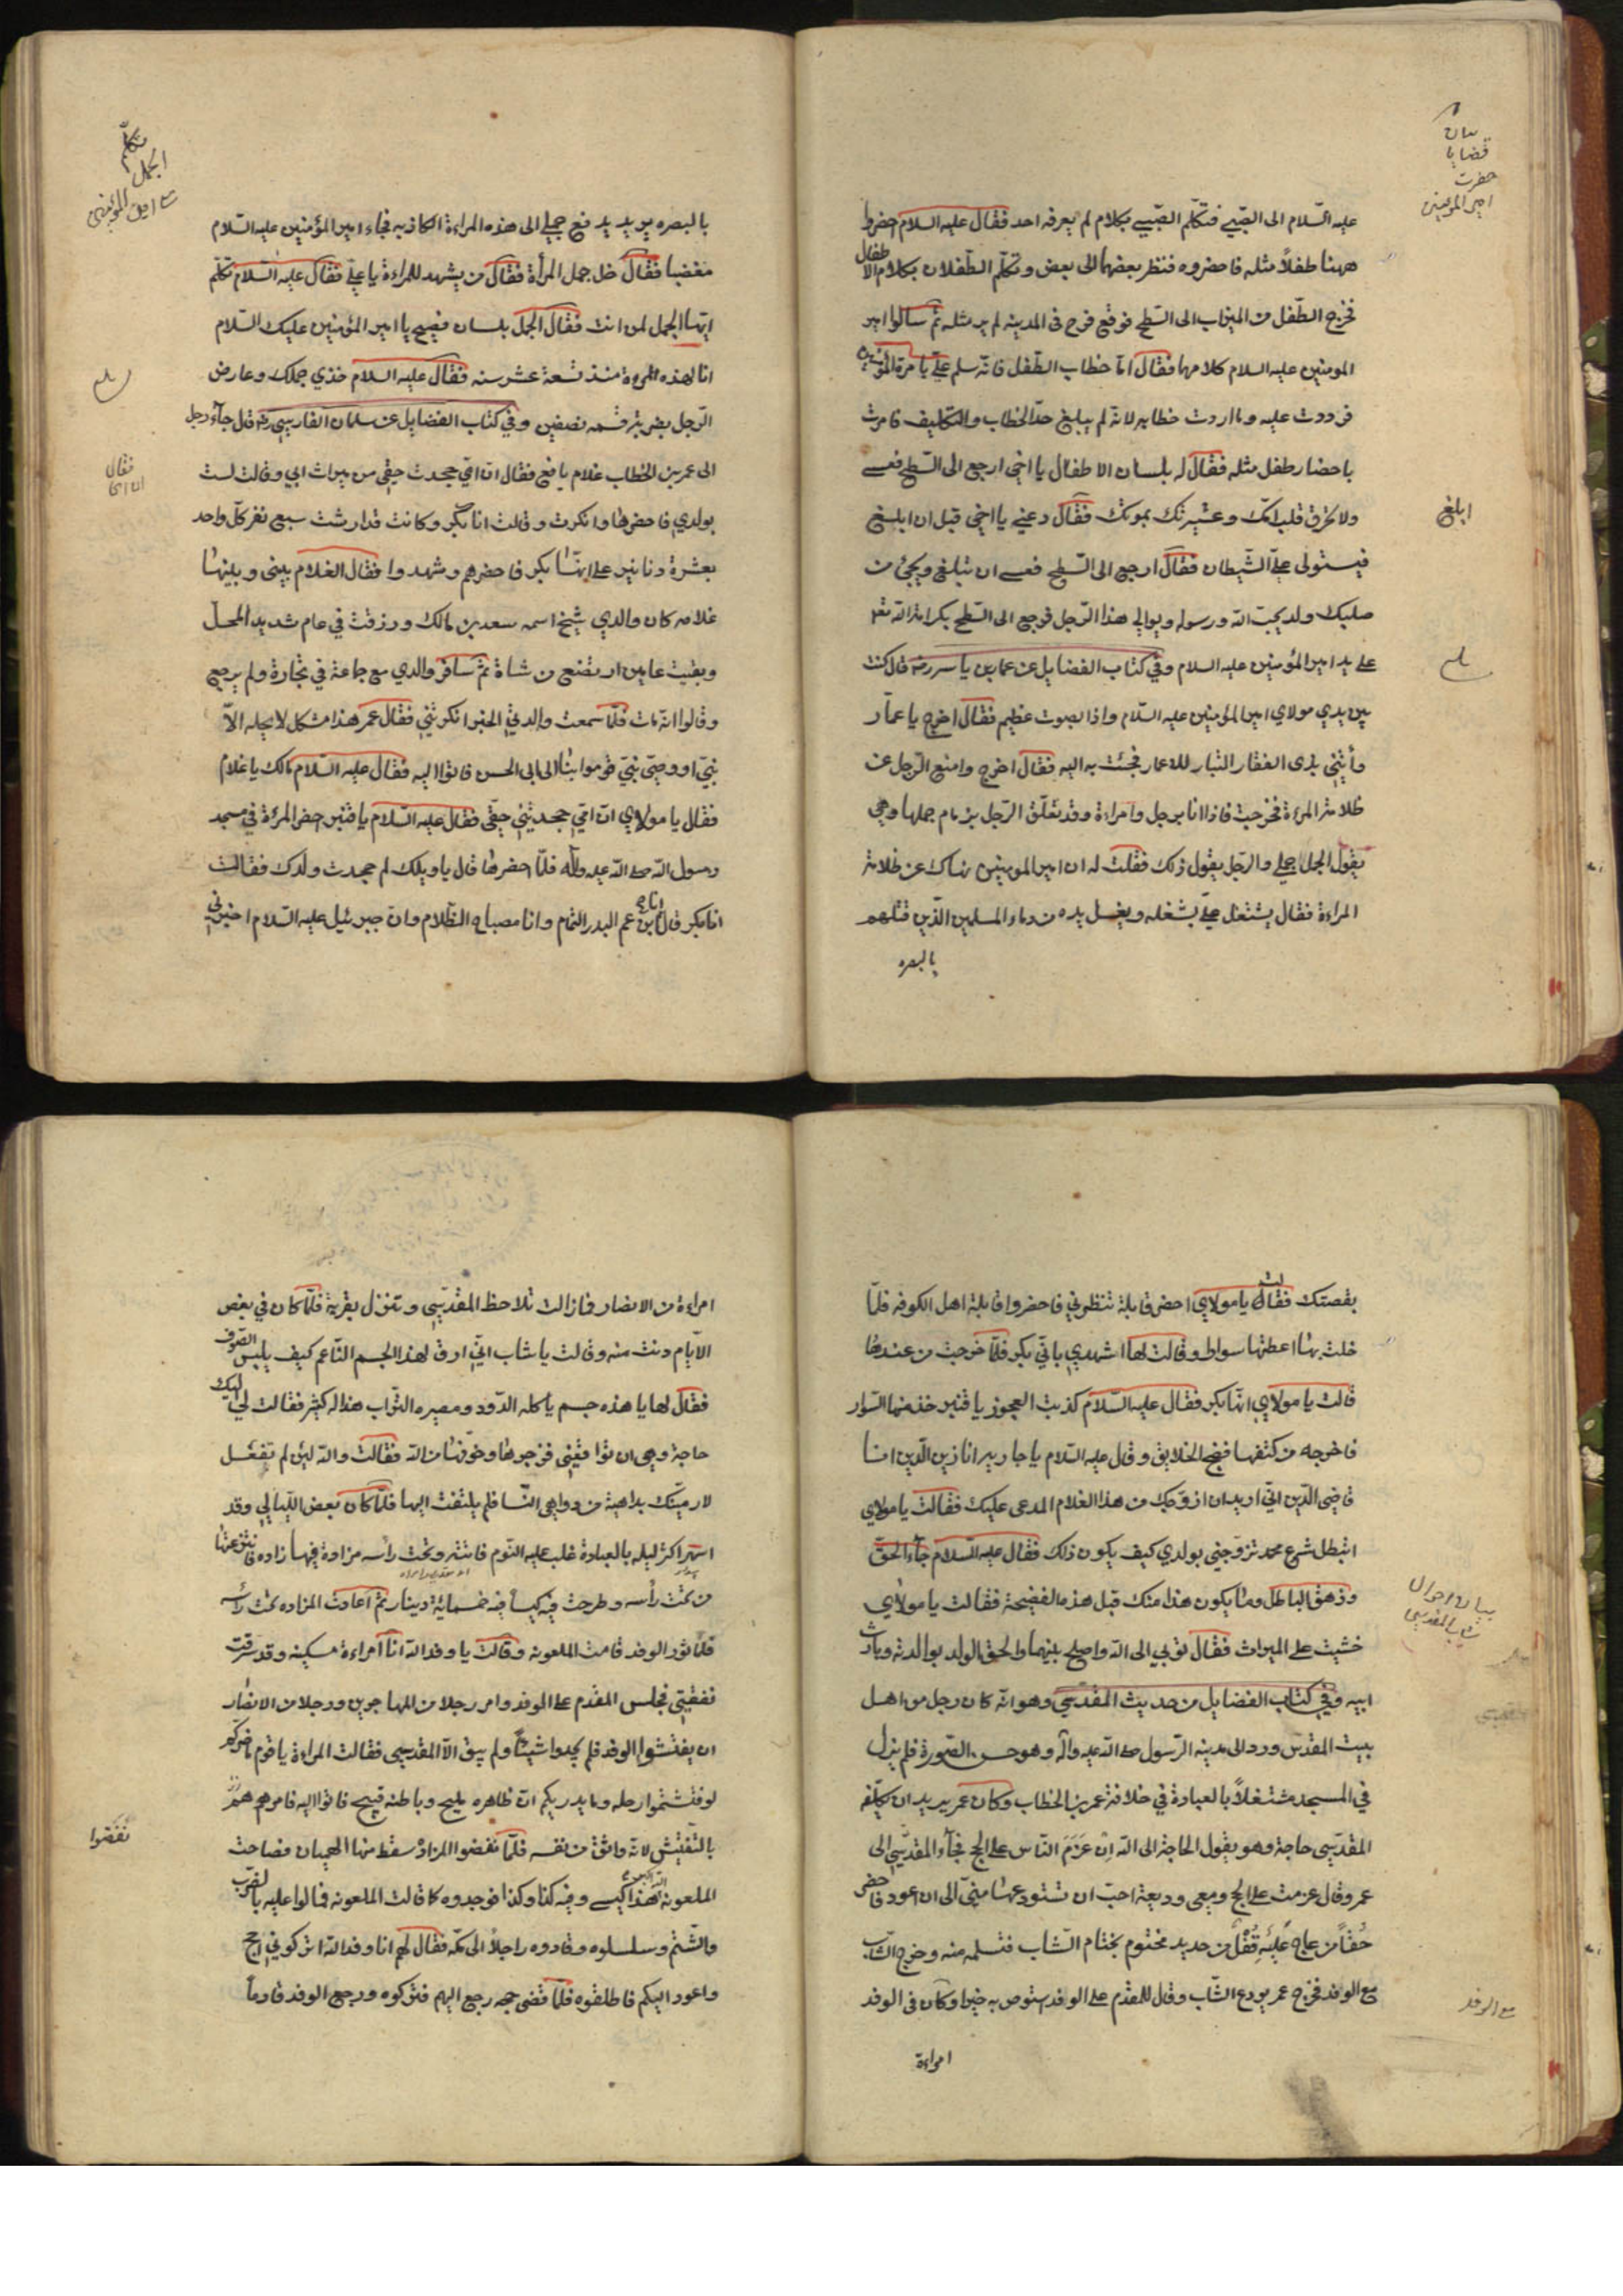 بيان
قضايا
حضرت
امير المومنين
عليه السّلام الى الصّبي فتكلّم الصّبي بكلام لم يعرفه احد فقال عليه السلام احضروا
ههنا طفلاً مثله فاحضروه فنظر بعضهما الى بعض وتكلّم الطّفلان بكلام الاطفال
فخرج الطّفل من الميزاب الى السّطح فوقع فرح فى المدينه لم ير مثله ثم سألوا امير
المومنين عليه السلام كلامهما فقال امّا خطاب الطّفل فانّه سلم علىّ بامرة المؤمنين
فرددت عليه وما اردت خطابه لانّه لم يبلغ حدّ الخطاب والتكليف فامرت
باحضار طفل مثله فقال له بلسان الاطفال يا اخي ارجع الى السّطح فعسى
ولا تحرق قلب امّك وعشيرتك بموتك فقال دعني يا اخي قبل ان ابلغ
ابلغ
فيستولى علىّ الشّيطان فقال ارجع الى السّطح فعسى ان تبلغ ويجئ من
صلبك ولد يحبّ الله ورسوله ويوالي هذا الرّجل فرجع الى السّطح بكرامة الله تع
على يد امير المؤمنين عليه السلام وفي كتاب الفضايل عن عمار بن ياسر رضه قال كنت
بين يدي مولاي امير المؤمنين عليه السّلام واذا بصوت عظيم فقال اخرج يا عمّار
وأتني بذى الفقار التبار للاعمار فجئت به اليه فقال اخرج وامنع الرّجل عن
ظلامة المرءة فخرجت فاذا انا برجل وامراءة وقد تعلّق الرّجل بزمام جملها وهي
تقول الجمل جملي والرّجل يقول ذلك فقلت له ان امير المومنين نهاك عن ظلامة
المراءة فقال يشتغل علىّ بشغله ويغسل يده من دماء المسلمين الّذين قتلهم
بالبصره
تكلّم
الجمل
مع امير المؤمنين
بالبصره يريد يدفع جملي الى هذه المراءة الكاذبه فجاء امير المؤمنين عليه السّلام
مغضبا فقال خل جمل المرأة فقال من يشهد للمراءة يا عليّ فقال عليه السّلام تكلّم
ايّها الجمل لمن انت فقال الجمل بلسان فصيح يا امير المؤمنين عليك السّلام
انا لهذه المروة منذ تسعة عشر سنه فقال عليه السلام خذي جملك وعارض
الرّجل بضربة قسمه نصفين وفي كتاب الفضايل عن سلمان الفارسي رضه قال جآء رجل
الى عمر بن الخطاب غلام يافع فقال انّ امّي جحدت حقّي من ميراث ابي وقالت لست
فقال
بولدي فاحضرها وانكرت وقالت انا بكر وكانت قد ارشت سبع نفر كلّ واحد
بعشرة دنانير على انّها بكر فاحضرهم وشهدوا فقال الغلام بيني وبينها
علامه كان والدي شيخ اسمه سعد بن مالك ورزقت في عام شديد المحل
وبقيت عامين ارتضع من شاة ثمّ سافر والدي مع جماعة في تجارة ولم يرجع
وقالوا انّه مات فلمّا سمعت والدتي الخبر انكرتني فقال عمر هذا مشكل لا يحله الاّ
نبيّ او وصيّ نبيّ قوموا بنا الى ابى الحسن فاتوا اليه فقال عليه السّلام مالك يا غلام
فقال يا مولاي انّ امّي جحدتني حقّي فقال عليه السّلام يا قنبر احضر المرئة في مسجد
رسول الله صلى الله عليه وآله فلمّا احضرها قال يا ويلك لم جحدت ولدك فقالت
انا بكر قال انا ابن عم البدر التمام وانا مصباح الظّلام وانّ جبرئيل عليه السّلام اخبرني
بقصتك فقالت يا مولاي احضر قابلة تنظرني فاحضروا قابلة اهل الكوفه فلمّا
خلت بها اعطتها سوارا وقالت لها اشهدي بانّي بكر فلمّا خرجت من عندها
قالت يا مولاي انّها بكر فقال عليه السّلام كذبت العجوز يا قنبر خذ منها السّوار
فاخرجه من كتفها فضج الخلايق وقال عليه السّلام يا جاريه انا زين الّدين انا
قاضي الّدين انّي اريد ان ازوّجك من هذا الغلام المدعى عليك فقالت يا مولاي
اتبطل شرع محمد تزوّجني بولدي كيف يكون ذلك فقال عليه السّلام جآء الحقّ
وزهق الباطل وما يكون هذا منك قبل هذه الفضيحة فقالت يا مولاي
بيان احوال
شاب المقدسي
خشيت على الميراث فقال توبي الى الله واصلح بينهما والحق الولد بوالدته وبارث
ابيه وفي كتاب الفضايل من حديث المقدّسي وهو انّه كان رجل من اهل
بيت المقدّس ورد الى مدينه الرّسول صلى الله عليه وآله وهو حسن الصّورة فلم يزل
في المسجد مشتغلاً بالعبادة في خلافة عمر بن الخطاب وكان عمر يريد ان يكلّفه
المقدّسي حاجة وهو يقول الحاجة الى الله اِن عَزَمَ النّاس على الحج فجآء المقدّسي الى
عمر وقال عزمت على الحج ومعي وديعة احبّ ان تستودعها منّي الى ان اعود فاحضر
حُقّاً من عاج عَلَيْهِ قُفْلٌ من حديد مختوم بختام الشّاب فتسلمه منه وخرج الشاب
مع الوفد فخرج عمر يودع الشّاب وقال للمقدّم على الوفد استوص به خيرا وكان فى الوفد
مع الوفد
امراءة
امراءة من الانصار فمازالت تلاحظ المقدّسي وتنزل بقربه فلمّا كان في بعض
الايّام دنت منه وقالت يا شاب انّي ارق لهذا الجسم النّاعم كيف يلبس الصّوف
فقال لها يا هذه جسم ياكله الدّود ومصيره التّراب هذا له كثير فقالت لي اليك
حاجة وهي ان تواقعني فزجرها وخوّفها من الله فقالت والله لئن لم تفعل
لارمينّك بداهية من دواهي النّسا فلم يلتفت اليها فلمّا كان بعض اللّيالي وقد
اسهر اكثر ليله بالعبادة غلب عليه النّوم فاتته وتحت رأسه مزادة فيها زاده فانتزعتها
من تحت رأسه وطرحت فيه كيساً فيه خمسمائة دينار ثمّ اعادت المزاده تحت رأسه
فلمّا ثوّر الوفد قامت الملعونه وقالت يا وفد الله انا امراءة مسكينه وقد سرقت
نفقتي فجلس المقدّم على الوفد وامر رجلا من المهاجرين ورجلا من الانصار
ان يفتشوا الوفد فلم يجدوا شيئاً ولم يبق الاّ المقدسي فقالت المراءة يا قوم ما ضرّكم
لو فتشتموا رحله وما يدريكم انّ ظاهره مليح وباطنه قبيح فاتوا اليه فامرهم هُمْ
بالتّفتيش لانّه واثق من نفسه فلمّا نفضوا المزادة سقط منها الهميان فصاحت
نفضوا
الملعونه الله اكبر هذا كيسي وفيه كذا وكذا فوجدوه كما قالت الملعونه فمالوا عليه بالضّرب
والشّتم وسلسلوه وقادوه راجلاً الى مكّه فقال لهم انا وفد الله اتركوني احج
واعود اليكم فاطلقوه فلمّا قضى حجه رجع اليهم فتركوه ورجع الوفد قادماً